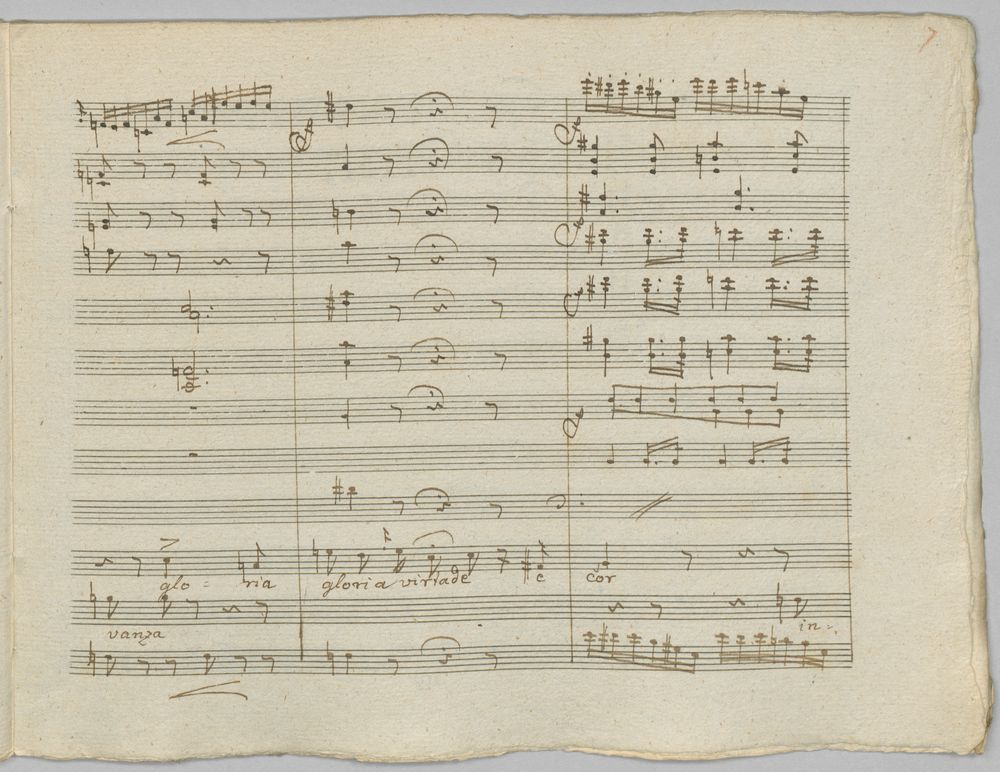 7
glo - ria gloria virtade e cor
vanza in=